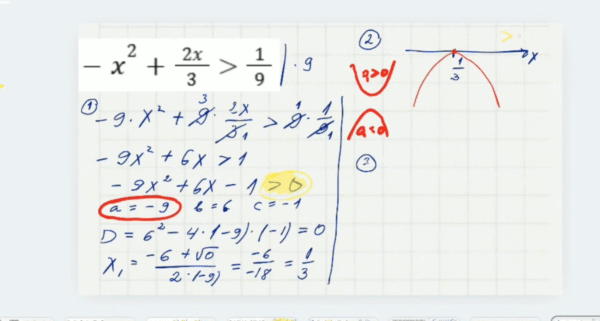 - x² + 2x/3 > 1/9 | · 9
①
- 9 · x² + 9³ · 2x/3₁ > 9¹ · 1/9₁
- 9x² + 6x > 1
- 9x² + 6x - 1 > 0
a = - 9 b = 6 c = - 1
D = 6² - 4 · (-9) · (-1) = 0
x₁ = -6 + √0 / 2 · (-9) = -6/-18 = 1/3
②
>
x
1/3
a>0
a<0
③